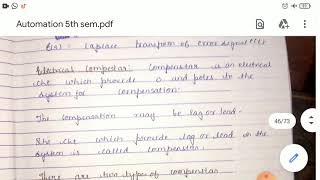 Automation 5th sem.pdf
E(s) : Laplace transform of error signal e(t)
Electrical Compestar: Compenstar is an electrical
ckt which provide o and poles to the
system for compensation.
The compensation may be lag or lead.
The ckt which provide lag or lead in the
system is called compenstar.
There are two types of compenstar
46/73